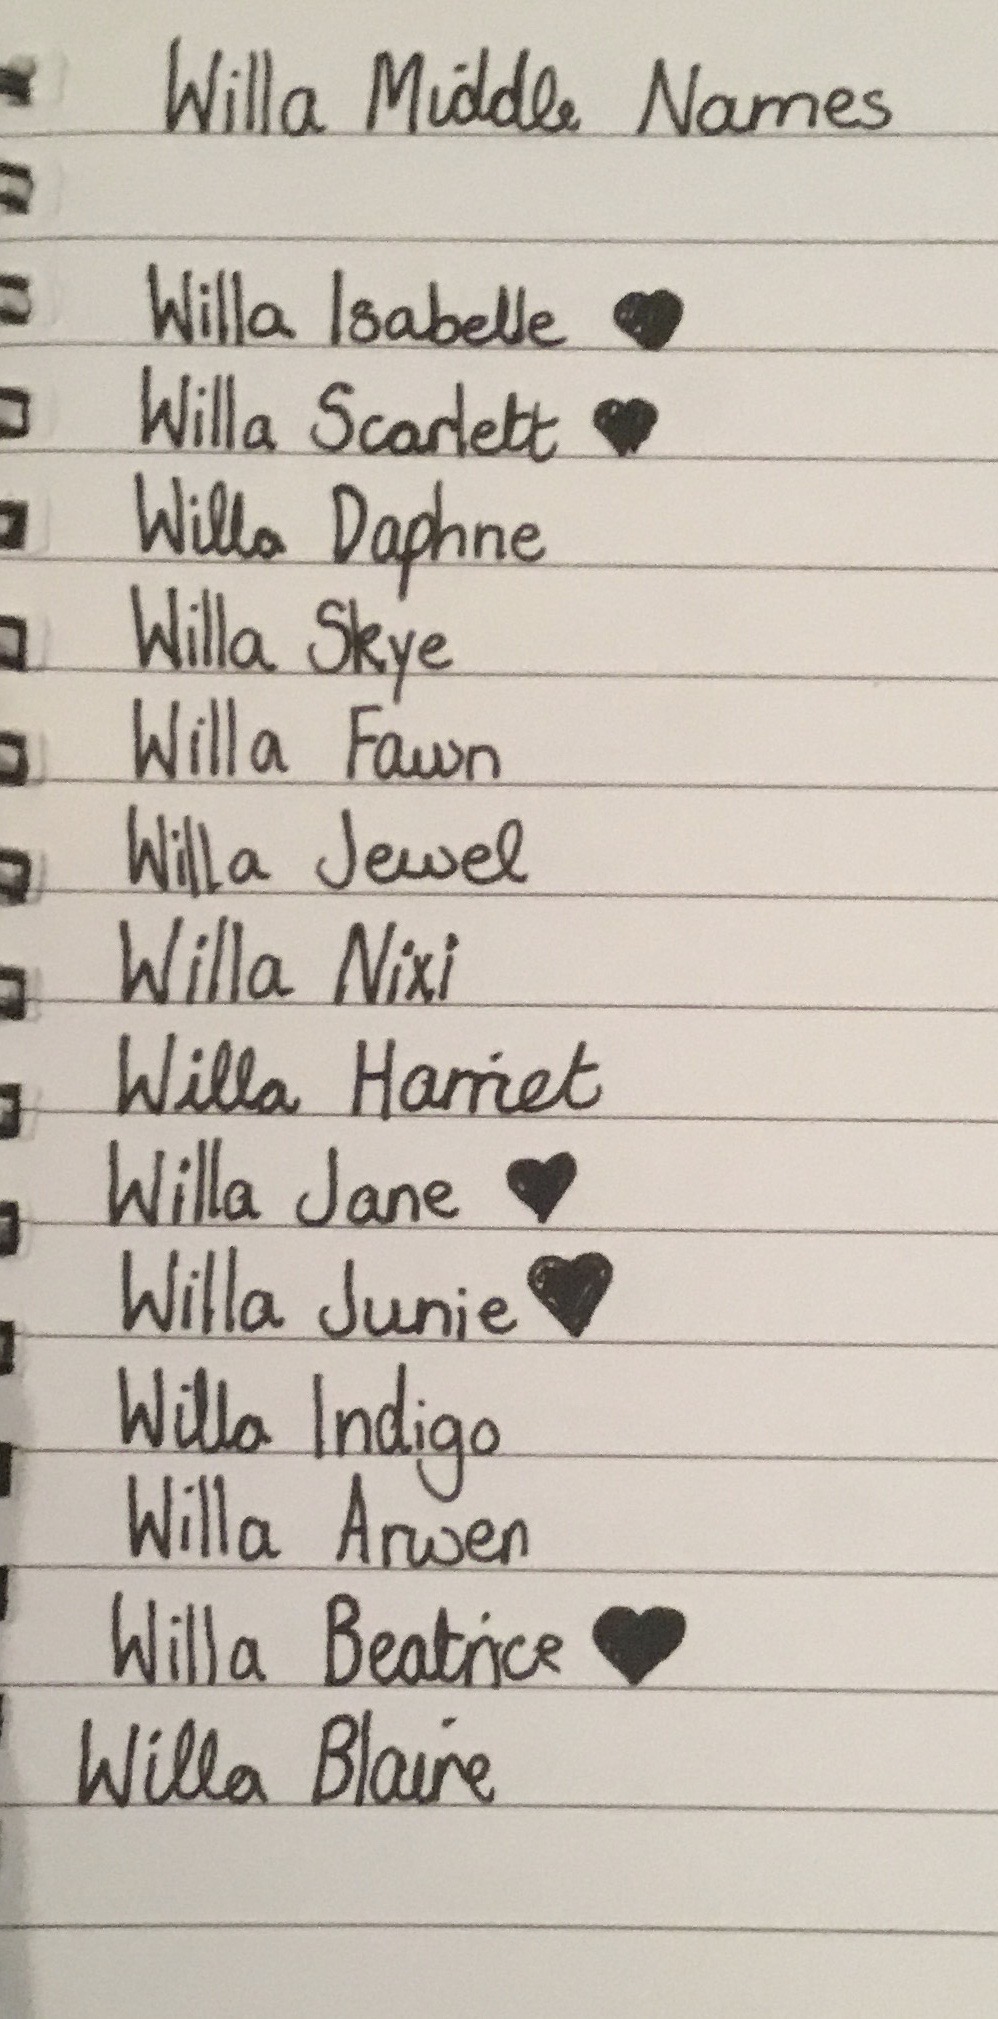 Willa Middle Names
Willa Isabelle ♥
Willa Scarlett ♥
Willa Daphne
Willa Skye
Willa Fawn
Willa Jewel
Willa Nixi
Willa Harriet
Willa Jane ♥
Willa Junie ♥
Willa Indigo
Willa Arwen
Willa Beatrice ♥
Willa Blaire